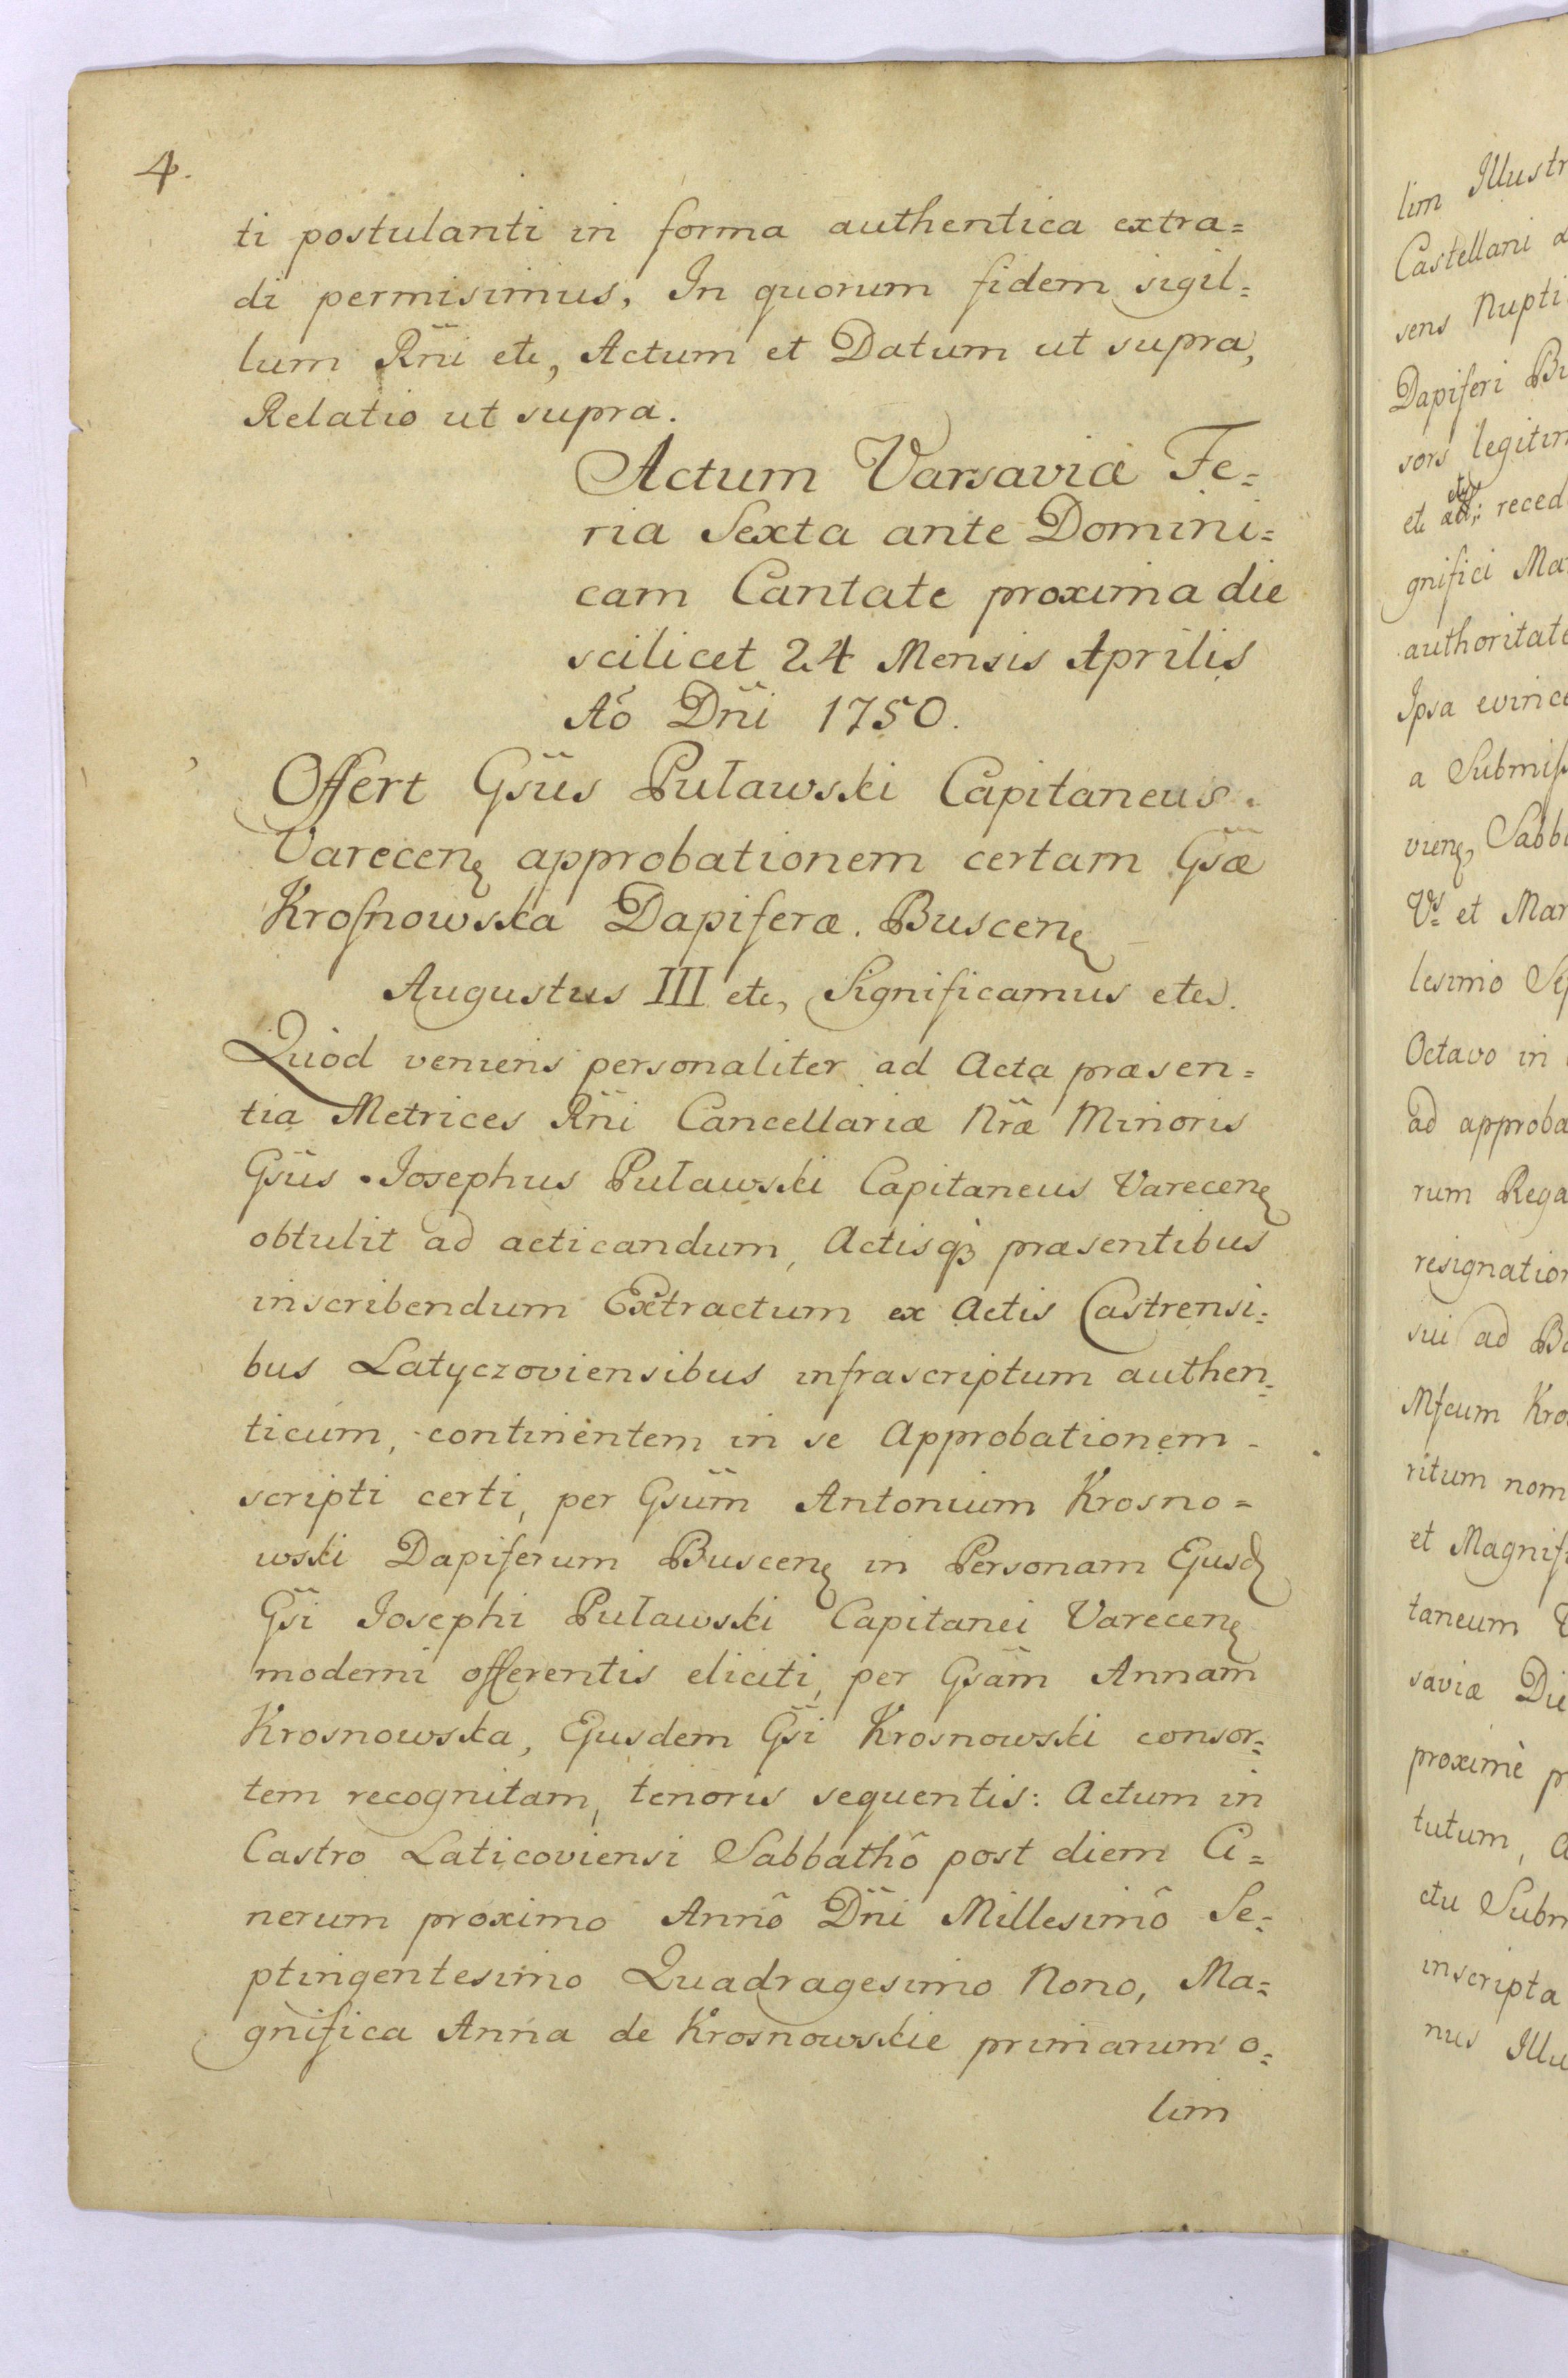 4.
ti postulanti in forma authentica extra=
di permisimus, In quorum fidem sigil=
lum Rñi etc, Actum et Datum ut supra,
Relatio ut supra.
Actum Varsaviæ Fe=
ria Sexta ante Domini=
cam Cantate proxima die
scilicet 24 Mensis Aprilis
Aô Dñi 1750.
Offert Gsũs Puławski Capitaneus
Varecenę approbationem certam Gsæ̃
Krosnowska Dapiferæ. Buscenę
Augustus III etc, Significamus etc.
Quod veniens personaliter ad Acta præsen=
tia Metrices Rñi Cancellariæ Nræ̃ Minoris
Gsũs Josephus Puławski Capitaneus Varecenę
obtulit ad acticandum, Actisqꝫ præsentibus
inscribendum Extractum ex Actis Castrensi=
bus Latyczoviensibus infrascriptum authen=
ticum, continentem in se Approbationem
scripti certi, per Gsũm Antonium Krosno=
wski Dapiferum Buscenę in Personam Ejusd
Gsĩ Josephi Puławski Capitanei Varecenę
moderni offerentis eliciti, per Gsãm Annam
Krosnowska, Ejusdem Gsĩ Krosnowski consor=
tem recognitam, tenoris sequentis: Actum in
Castro Laticoviensi Sabbathô post diem Ci=
nerum proximo Annô Dñi Millesimô Se=
ptingentesimo Quadragesimo Nono, Ma=
gnifica Anna de Krosnowskie primarum o=
lim
lim Illustr
Castellani
sens Nupti
Dapiferi Bu
sors legitim
etc reced
gnifici Ma
authoritate
Ipsa evince
a Submiss
vienę, Sabb
et Mar
lesimo Sep
Octavo in
ad approba
rum Rega
resignation
sui ad Ba
Mfcum Kro
ritum nom
et Magnifi
taneum
saviæ Die
proximè p
tutum, a
ctu Subm
inscripta
nus Illu